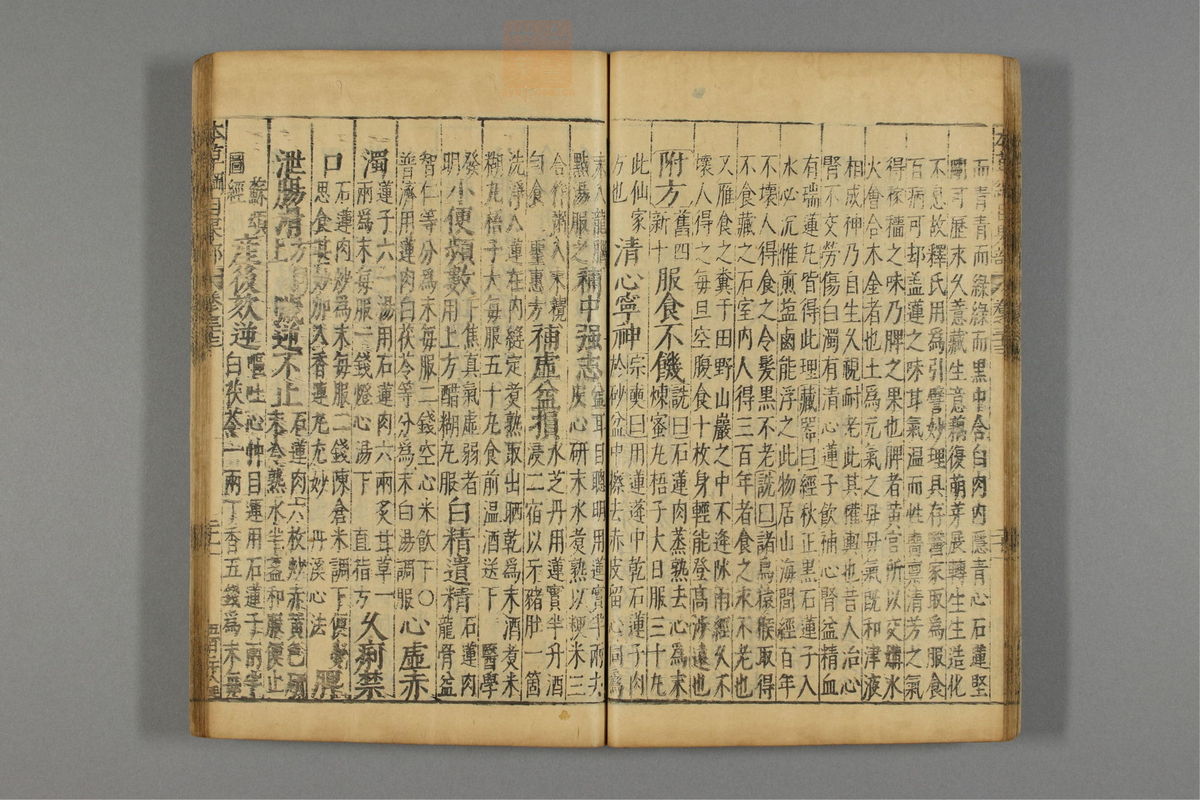 而青青而綠綠而黑中含白肉內隱青心石蓮堅
剛可歷永久薏藏生意藕復萌芽展轉生生造化
不息故釋氏用爲引譬妙理具存醫家取爲服食
百病可却蓋蓮之味甘氣溫而性嗇稟清芳之氣
得稼穡之味乃脾之果也脾者黃宮所以交媾水
火會合木金者也土爲元氣之母母氣既和津液
相成神乃自生久視耐老此其權輿也昔人治心
腎不交勞傷白濁有清心蓮子飲補心腎益精血
有瑞蓮丸皆得此理藏器曰經秋正黑石蓮子入
水必沉惟煎鹽鹵能浮之此物居山海間經百年
不壞人得食之令髮黑不老詵曰諸鳥猿猴取得
不食藏之石室內人得三百年者食之永不老也
又雁食之糞于田野山巖之中不逢陰雨經久不
壞人得之每旦空腹食十枚身輕能登高涉遠也
附方舊四新十服食不饑詵曰石蓮肉蒸熟去心爲末煉蜜丸梧子大日服三十丸
此仙家方也清心寧神宗奭曰用蓮蓬中乾石蓮子肉於砂盆中擦去赤皮留心同爲
末入龍腦點湯服之補中强志益耳目聰明用蓮實半兩去皮心研末水煮熟以粳米三
合作粥入末攪勻食聖惠方補虛益損水芝丹用蓮實半升酒浸二宿以牙豬肚一箇
洗淨入蓮在內縫定煮熟取出晒乾爲末酒煮米糊丸梧子大每服五十丸食前溫酒送下醫學
發明小便頻數下焦真氣虛弱者用上方醋糊丸服白精遺精石蓮肉龍骨益
智仁等分爲末每服二錢空心米飲下○普濟用蓮肉白茯苓等分爲末白湯調服心虛赤
濁蓮子六一湯用石蓮肉六兩炙甘草一兩爲末每服一錢燈心湯下直指方久痢禁
口石蓮肉炒爲末每服二錢陳倉米調下便覺思食甚妙加入香連丸尤妙丹溪心法脾
泄腸滑方同上噦逆不止石蓮肉六枚炒赤黃色研末冷熟水半盞和服便止
蘇頌圖經產後欬逆嘔吐心忡目運用石蓮子兩半白茯苓一兩丁香五錢爲末每